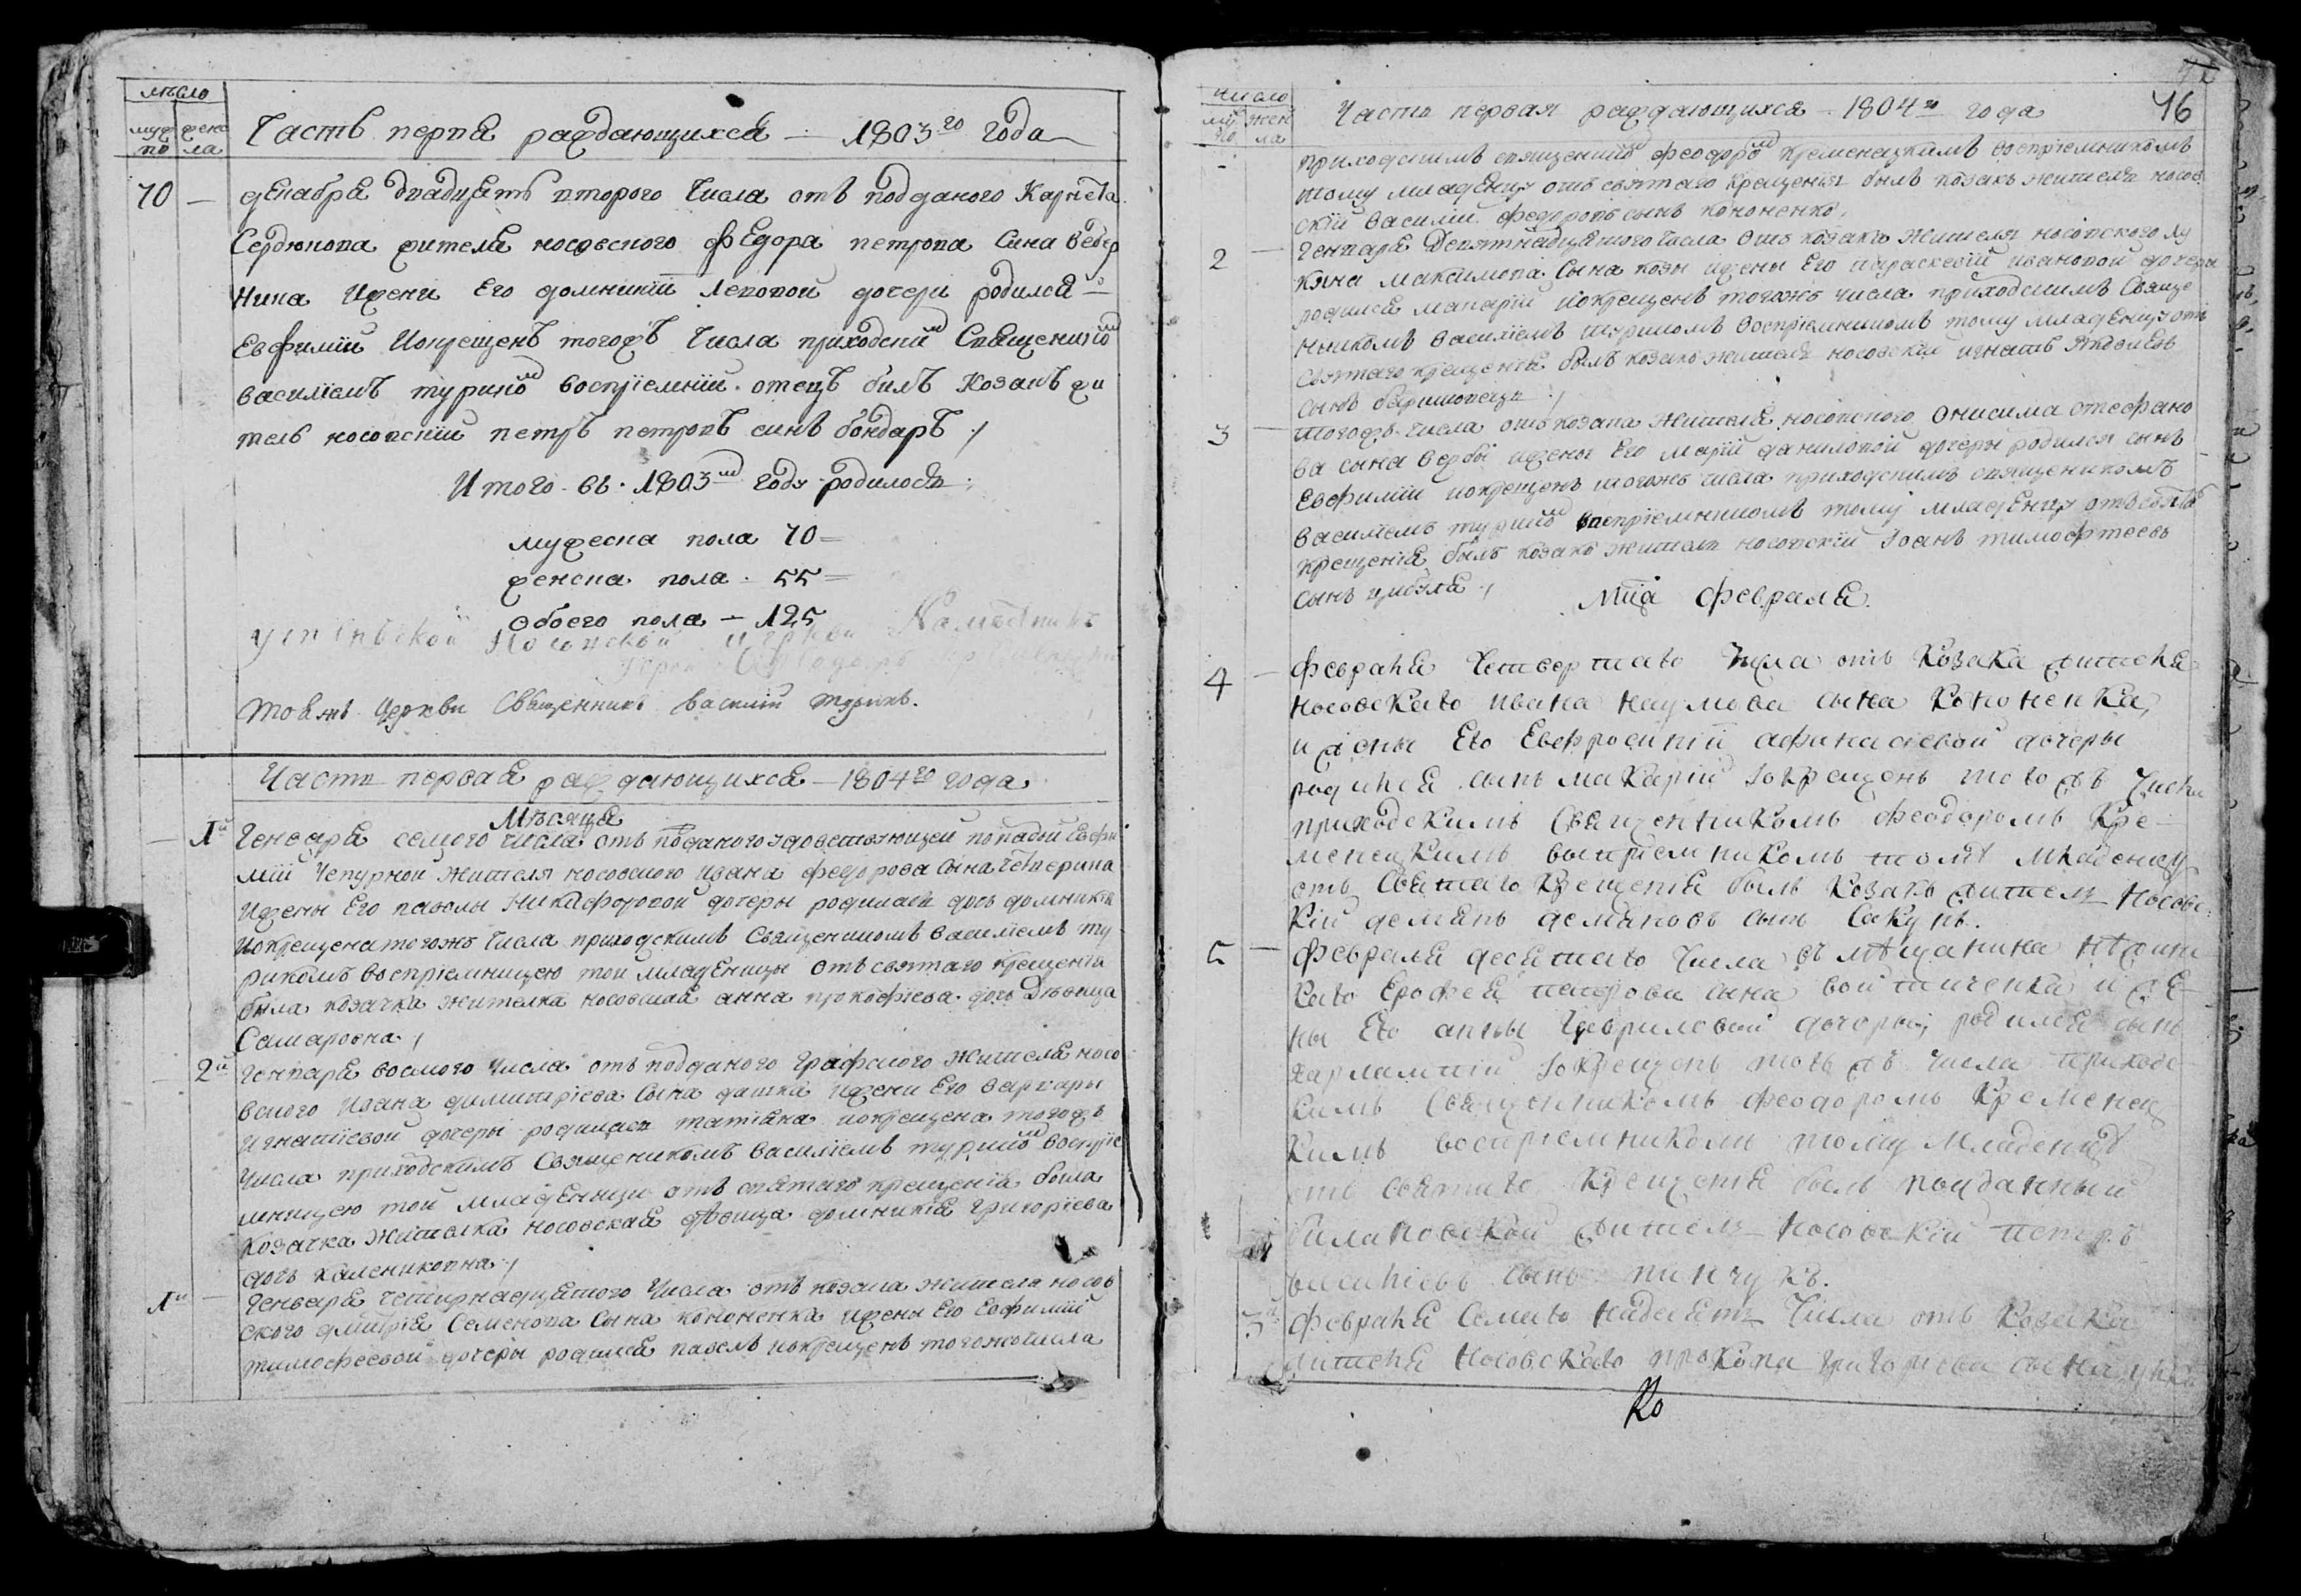 число
муж жена
по ла
Часть первая раждающихся — 1803го года
70 — декабря двадцать второго числа отъ подданого
Сердюкова жителя носовского Федора петрова сина
нина ижени его домникіи леоовой дочери родился
Евфимїй икрещенъ тогожъ числа приходскїм Священиком
василїемъ туриком восприемнїй отецъ билъ козакъ жи
тель носовскїй петръ петровъ синъ бондаръ
Итого въ 1803м году родилось
мужеска пола 70
женска пола 55
обоего пола — 125
успенской Носовской церкви Намѣстникъ
Тояжъ церкви Священникъ василїй турикъ.
Часть первая раждающихся — 1804го года
Мѣсяца
1й Генваря семого числа отъ
мїи Чепурной жителя носовского ивана федорова сына Четверика
ижены его павлы Никифоровой дочеры родилась дочь домникїя
икрещена тогожъ числа приходскимъ Священникомъ василїемъ ту
рикомъ воспрїемницею той младеницы отъ святаго крещенїя
была козачка жителка носовская анна прокофїева дочь дѣвица
Самаровна
2й Генваря восмого числа отъ подданого графского жителя носо
вского ивана димитрїева сына дашка ижени его варвары
игнатїевой дочеры родилася татїяна икрещена тогожъ
числа приходскимъ Священикомъ василїемъ туриком воспрїе
мницею той младеници отъ святаго крещенїя была
козачка жителка носовская дѣвица домникїя григорїева
дочь халениковна
1й — Генваря четирнадцятого числа отъ козака жителя носов
ского дмитрїя Семенова сына кононенка ижены его Евфимїи
тимофеевой дочеры родился павелъ икрещенъ тогожъ числа
число
му жен
по ла
Часть первая раждающихся — 1804го года
76
приходскимъ священиком феодором Кременецкимъ воспрїемникомъ
тому младенцу отъ святаго крещенїя былъ козакъ жителъ носов
скїй василїй федоровъ сынъ кононенко,
2 — Генваря Девятнадцятого числа отъ козака жителя носовского лу
кяна максимова сына козы ижены его параскевїи ивановой дочери
родился макарїй икрещенъ тогожъ числа приходскимъ Свяще
нникомъ василїемъ турикомъ воспрїемникомъ тому младенцу отъ
Святаго крещенїя былъ козакъ жителъ носовскїй игнатъ Яковлевъ
сынъ
3 — Тогожъ числа отъ козака жителя носовского Онисима стефано
ва сына вербы ижены его марїи даниловой дочеры родился сынъ
Евфимїй икрещенъ тогожъ числа приходскимъ священикомъ
василїемъ туриком воспрїемникомъ тому младенцу отъ свята
крещенїя былъ козакъ житель носовскїй Іоанъ тимофѣевъ
сынъ цибуля
Мца февраля
4 — февраля Четвертаго числа отъ Козака жителя
носовскаго ивана наумова сына Кононенка,
ижены Его Евфросинїи афанасїевой дочеры
родился сынъ макарїй Іокрещенъ тогожъ числа
приходскимъ Священникомъ Феодоромъ Кре-
менецкимъ воспрїемникомъ тому младенцу
отъ Святаго Крещенїя былъ Козакъ житель Носовс
кїй демянъ демяновъ сынъ Сакунъ.
5 — февраля десятаго Числа отъ мѣщанина нѣжинс
каго Ерофея сына Войтиченка ижѣ
ны Его анны Гавриловой дочеры, родился сынъ
харлампїй Іокрещенъ тогожъ числа приходс
кимъ Священникомъ Феодоромъ Кременец
кимъ воспрїемникомъ тому младенцу
отъ святаго Крещенїя былъ подданный
житель Носовскїй петръ
василїевъ сынъ пинчукъ.
февраля Семаго надесять Числа отъ Козака
жителя Носовскаго прокопа григорїева сына
Ко